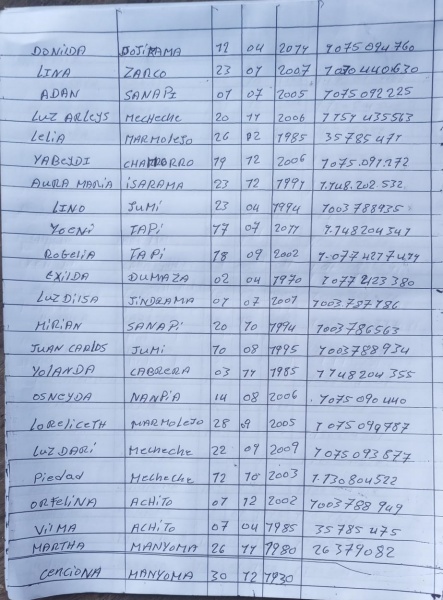 DONILDA DOJIRAMA 12 04 2014 1075 094 760
LINA ZARCO 23 01 2007 1070 440630
ADAN SANAPI 01 07 2005 1075092225
LUZ ARLEYS MECHECHE 20 11 2006 1151 435563
LELIA MARMOLEJO 26 02 1985 35 785 471
YABEYDI CHAMORRO 19 12 2006 1075.091.172
AURA MARIA ISARAMA 23 12 1991 1.148.202 532
LINO JUMI 23 04 1994 1003788935
YOENI TAPI 17 07 2011 1.148204 547
ROGELIA TAPI 18 09 2002 1.077427474
EXILDA DUMAZA 02 04 1970 1077 223 380
LUZ DILSA JINDRAMA 01 07 2001 1003 737 786
MIRIAN SANAPI 20 10 1994 1003786563
JUAN CARLOS JUMI 10 08 1995 1003788934
YOLANDA CABRERA 03 11 1985 1148204 355
OSNEYDA NANPIA 14 08 2006 1075 090 440
LORELICETH MARMOLEJO 28 9 2005 1075 099787
LUZ DARI MECHECHE 22 09 2009 1075 093 877
Piedad MECHECHE 12 10 2003 1.130804522
ORFELINA ACHITO 07 12 2002 1003788 949
VILMA ACHITO 07 04 1985 35 785 475
MARTHA MANYOMA 26 11 1980 26 379082
CENCIONA MANYOMA 30 12 1930